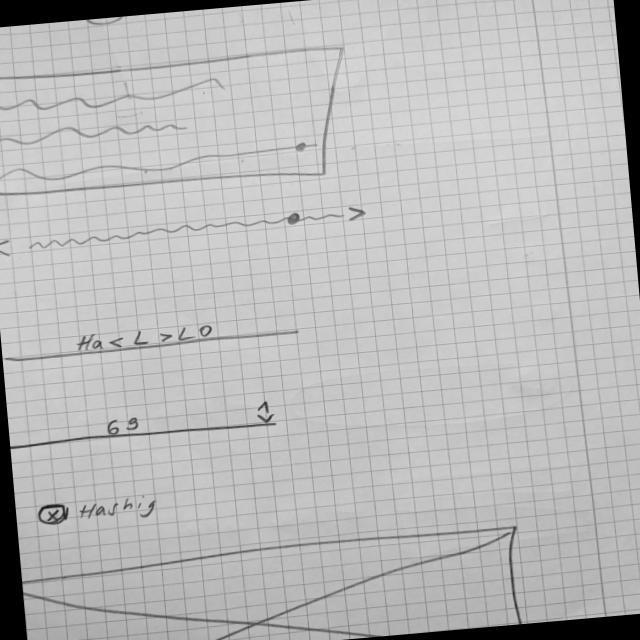 Ha < L > LO
69
Hashig